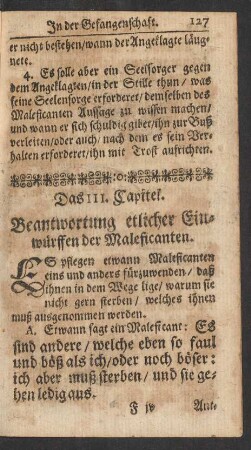 In der Gefangenschaft. 127
er nicht bestehen/wann der Angeklagte läug-
nete.
4. Es solle aber ein Seelsorger gegen
dem Angeklagten/in der Stille thun/was
seine Seelensorge erforderet/demselben des
Maleficanten Aussage zu wissen machen/
und wann er sich schuldig giber/ihn zur Buß
verleiten/oder auch/nach dem es sein Ver-
halten erforderet/ihn mit Trost aufrichten.
Das III. Capitel.
Beantwortung etlicher Ein-
würffen der Maleficanten.
ES pflegen etwann Maleficanten
eins und anders fürzuwenden/daß
ihnen in dem Wege lige/warum sie
nicht gern sterben/welches ihnen
muß ausgenommen werden.
A. Etwann sagt ein Maleficant: Es
sind andere/welche eben so faul
und böß als ich/oder noch böser:
ich aber muß sterben/und sie ge-
hen ledig aus.
F iv Ant-